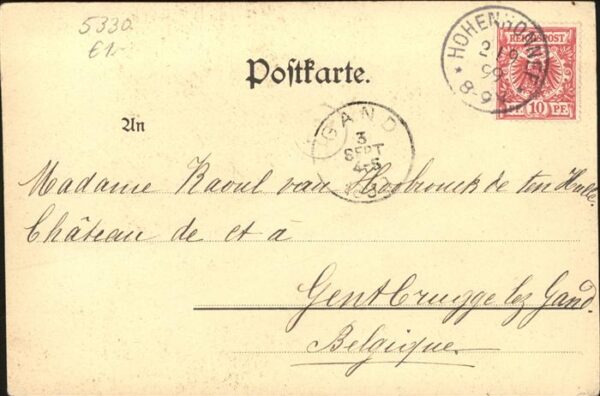 5330
€1-
HOHENHONNEF
2 / 9
99
8-9
REICHSPOST
10 PF.
Postkarte.
GAND
3
SEPT
4-5
An
Madame Raoul van Hoobrouck de ten Hulle.
Château de et à
Gentbrugge lez Gand.
Belgique.